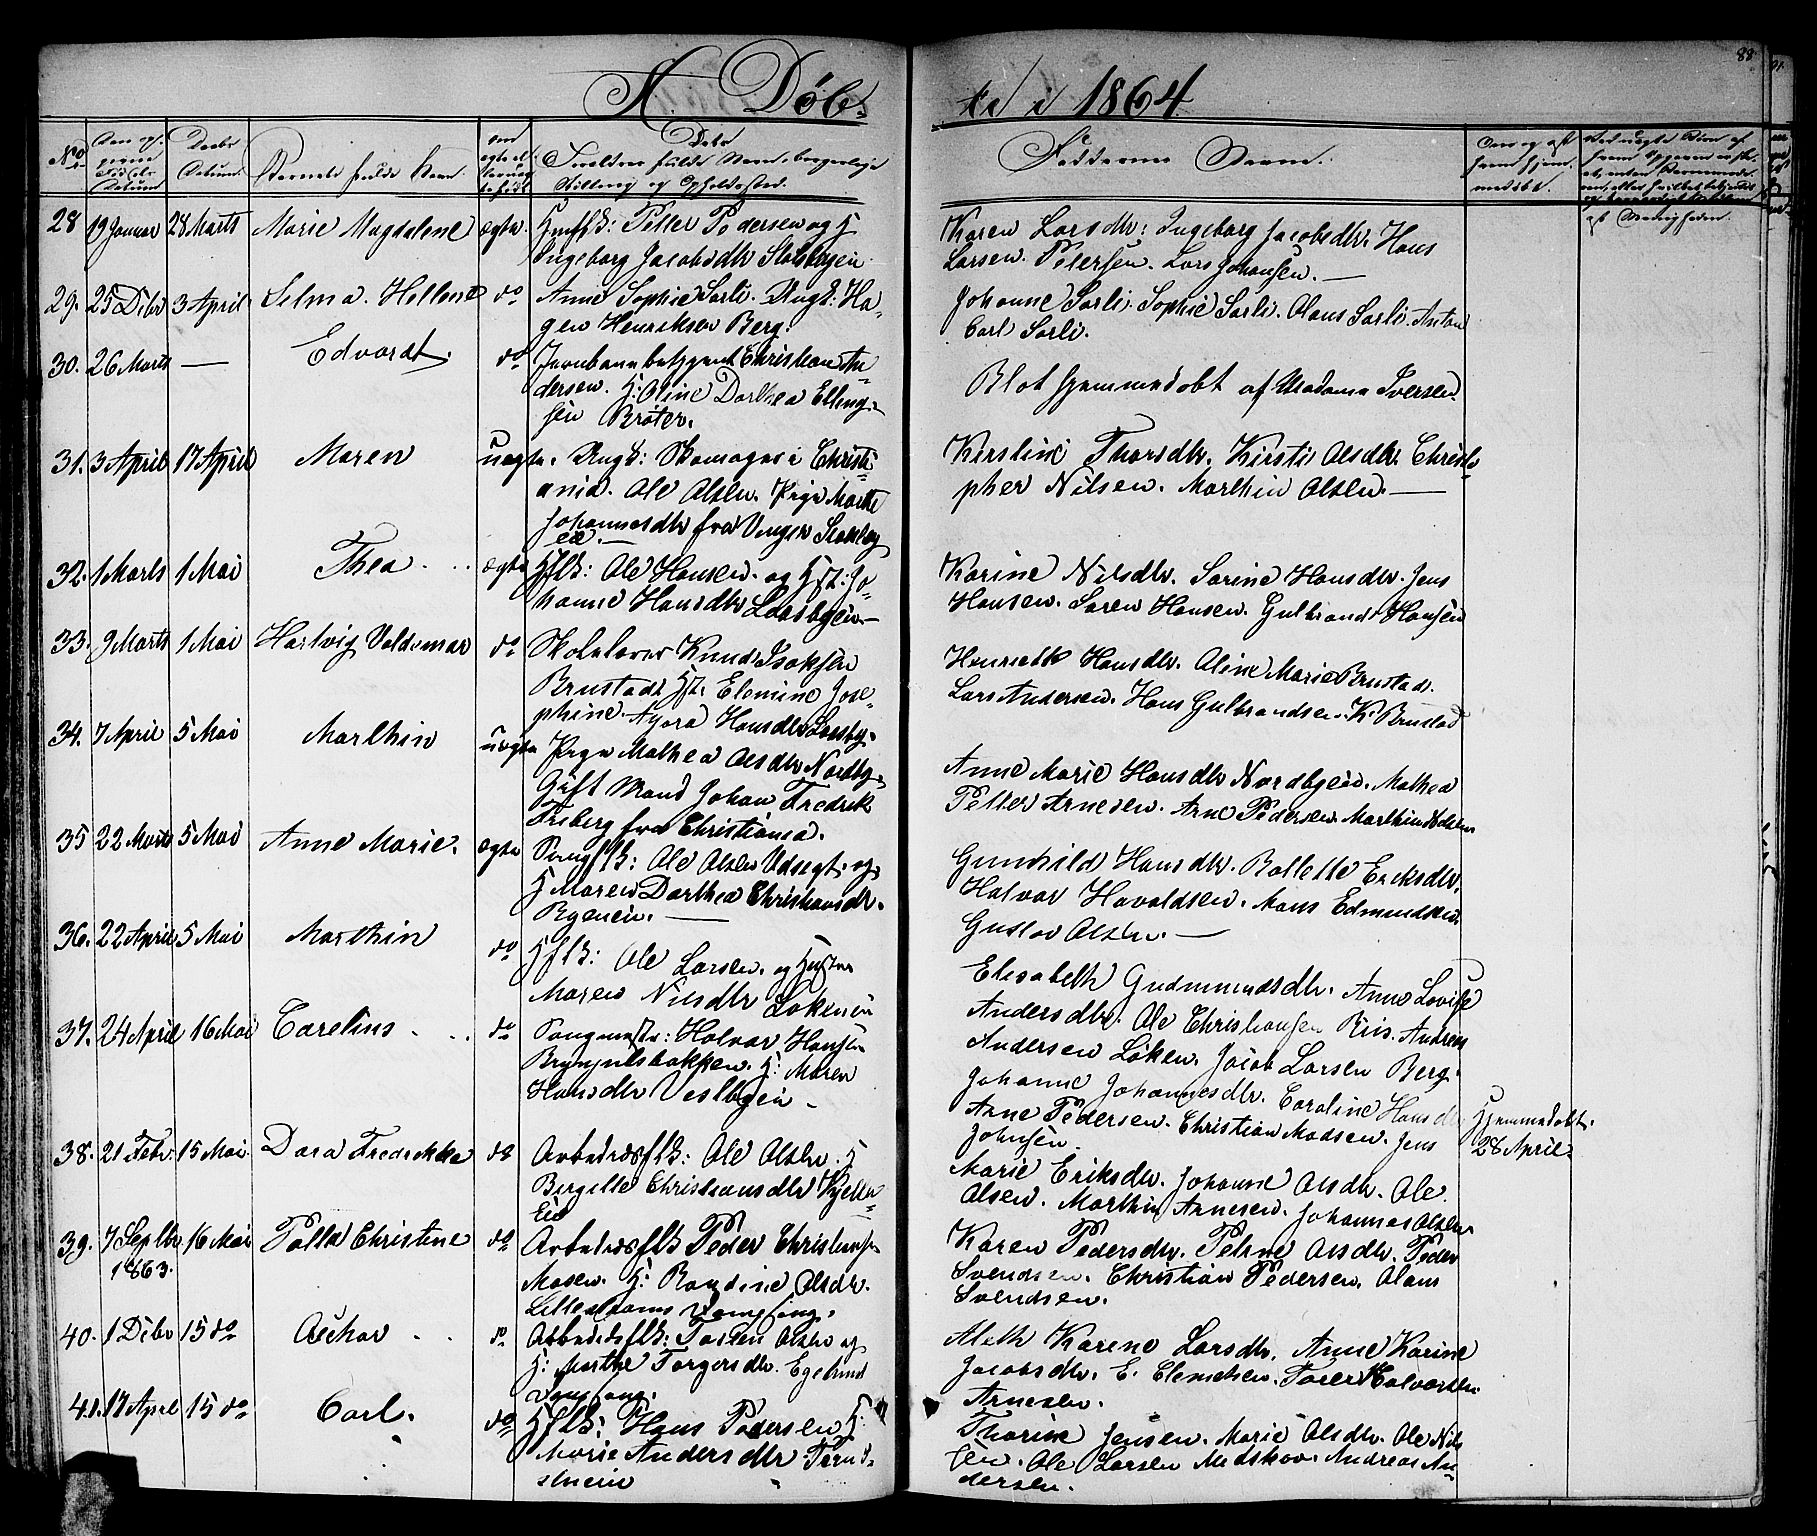 88
A. Døb-
te i 1864
No
Datum
Daabs
Datum
Barnets fulde Navn.
Forældres fulde Navn, borgerlige
Stilling og Opholdssted.
Faddernes Navne.
28 19 Januar 28 Marts Marie Magdalene ægte Huusflk: Petter Pedersen og H
Ingeborg Jacobsdtr
Karen Larsdtr. Ingeborg Jacobsdtr. Hans
Larsen. Petersen. Lars Johansen. —
29. 25 Dcbr 3 April Selma. Hellene do Anne Sophie Sørli. Ungk: Ha-
gen Henriksen Berg.
Johanne Sørli. Sophie Sørli. Olaus Sørli. Anton
Carl Sørli.
30. 26 Marts — Edvardt. do Jernbanebetjent Christian An-
dersen. H: Oline Dorthea Elling-
sen Brøter.
Blot hjemmedøbt af Madame Iversen.
31. 3 April 17 April Maren uægte. Ungk: Skomager i Christi-
ania. Ole Olsen. Pige Marthe
Johannesdtr fra
eie. —
Kirstine Thorsdtr. Kirsti Olsdtr. Christo-
pher Nilsen. Marthin Olsen. —
32. 1 Marts 1 Mai Thea . . ægte Hflk: Ole Hansen. og Hst: Jo-
hanne Hansdtr Losbyeie. —
Karine Nilsdtr. Sørine Hansdtr. Jens
Hansen. Søren Hansen. Gulbrandt Hansen
33. 9 Marts 1 Mai Hartvig Valdemar do Skolelærer Knud Isaksen
Brustad Hst. Elemine Jose-
phine Hansdtr Losby-
Hansdtr. Oline Marie Brustad.
Lars Andersen. Hans Gulbrandsen. K. Brustad
34. 7 April 5 Mai Marthin uægte Pige Mathea Olsdtr Nordby-
Gift Mand Johan Fredrik
Friberg fra Christiania.
Anne Marie Hansdtr Nordbyeie. Mathea
Petter Arnesen. Arne Pedersen. Marthin Olsen
35 22 Marts 5 Mai Anne Marie. ægte Saugflk: Ole Olsen og
H Maren Dorthea Christiansdtr.
—
Gunhild Hansdtr. Bollette Eriksdtr.
Halvor Havoldsen. Mons Edmundsen
Gustav Olsen. —
36. 22 April 5 Mai Marthin do Hflk: Ole Larsen. og Hustru
Maren Nilsdtr Løkeneie
Elisabeth Gudmundsdtr. Anne Lovise
Andersdtr. Ole Christiansen Riis. Andreas
Andersen Løken. Jacob Larsen Berg.
37. 24 April 16 Mai Carelius . . do Saugmester: Halvor Hansen
Brynjulsbakken. H: Maren
Hansdtr Vesbyeie —
Johanne Johannesdtr. Caroline Hansdtr
Arne Pedersen. Christian Madsen. Jens
Johnsen
Hjemmedøbt.
28 April
38. 21 Febr. 15 Mai Dora Fredrikke do Arbeidsflk: Ole Olsen. H
Birgitte Christiansdtr
Eie
Marie Eriksdtr. Johanne Olsdtr. Ole
Olsen. Marthin Arnesen. Johannes Olsen
39. 7 Septbr 16 Mai Palle Christine do Arbeidsflk Peder Christiansen
1863.
Mosen. H: Randine Olsdtr.
Karen Pedersdtr. Petrine Olsdtr. Peder
Svendsen. Christian Pedersen. Olaus
Svendsen.
40. 1 Dcbr 15 do . . do Arbeidsflk: Olsen og
H: Marthe Torgersdtr. Egelund
Aleth Karene Larsdtr. Anne Karine
Jacobsdtr. E. Clemetsen. Halvorsen.
Arnesen.
41. 17 April 15 do Carl. do Hflk: Hans Pedersen H:
Marie Andersdtr Tern-
Thorine Jensen. Marie Olsdtr. Ole Nils
sen. Ole Larsen Midskov. Andreas An-
dersen.